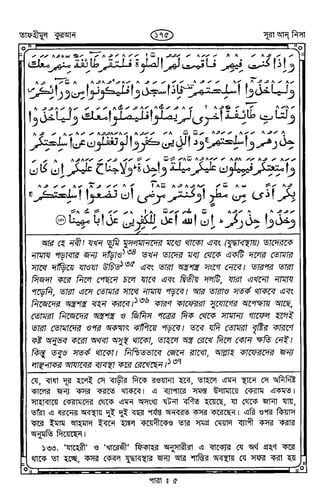 তাফহীমুল কুরআন
১৭৫
সূরা আন্ নিসা
وَإِذَا كُنْتَ فِيهِمْ فَأَقَمْتَ لَهُمُ الصَّلٰوةَ فَلْتَقُمْ طَائِفَةٌ مِّنْهُمْ مَّعَكَ
وَلْيَأْخُذُوا أَسْلِحَتَهُمْ فَإِذَا سَجَدُوا فَلْيَكُونُوا مِنْ وَّرَائِكُمْ
وَلْتَأْتِ طَائِفَةٌ أُخْرٰى لَمْ يُصَلُّوا فَلْيُصَلُّوا مَعَكَ وَلْيَأْخُذُوا
حِذْرَهُمْ وَأَسْلِحَتَهُمْ وَدَّ الَّذِينَ كَفَرُوا لَوْ تَغْفُلُونَ عَنْ أَسْلِحَتِكُمْ
وَأَمْتِعَتِكُمْ فَيَمِيلُونَ عَلَيْكُمْ مَّيْلَةً وَّاحِدَةً وَلَا جُنَاحَ عَلَيْكُمْ إِنْ كَانَ
بِكُمْ أَذًى مِّنْ مَّطَرٍ أَوْ كُنْتُمْ مَّرْضٰى أَنْ تَضَعُوا أَسْلِحَتَكُمْ
وَخُذُوا حِذْرَكُمْ إِنَّ اللهَ أَعَدَّ لِلْكٰفِرِينَ عَذَابًا مُّهِينًا
আর হে নবী! যখন তুমি মুসলমানদের মধ্যে থাকো এবং (যুদ্ধাবস্থায়) তাদেরকে
নামায পড়াবার জন্য দাঁড়াও১৩৪ তখন তাদের মধ্য থেকে একটি দলের তোমার
সাথে দাঁড়িয়ে যাওয়া উচিত১৩৫ এবং তারা অস্ত্রশস্ত্র সংগে নেবে। তারপর তারা
সিজদা করে নিলে পেছনে চলে যাবে এবং দ্বিতীয় দলটি, যারা এখনো নামায
পড়েনি, তারা এসে তোমার সাথে নামায পড়বে। আর তারাও সতর্ক থাকবে এবং
নিজেদের অস্ত্রশস্ত্র বহন করবে।১৩৬ কারণ কাফেররা সুযোগের অপেক্ষায় আছে,
তোমরা নিজেদের অস্ত্রশস্ত্র ও জিনিস পত্রের দিক থেকে সামান্য গাফেল হলেই
তারা তোমাদের ওপর অকস্মাৎ ঝাঁপিয়ে পড়বে। তবে যদি তোমরা বৃষ্টির কারণে
কষ্ট অনুভব করো অথবা অসুস্থ থাকো, তাহলে অস্ত্র রেখে দিলে কোন ক্ষতি নেই।
কিন্তু তবুও সতর্ক থাকো। নিশ্চিতভাবে জেনে রাখো, আল্লাহ কাফেরদের জন্য
লাঞ্ছনাকর আযাবের ব্যবস্থা করে রেখেছেন।১৩৭
যে, বাধা দূর হলেই সে বাড়ীর দিকে রওয়ানা হবে, তাহলে এমন স্থানে সে অনির্দিষ্ট
কালের জন্য কসর করতে থাকবে। এ ব্যাপারে সমস্ত উলামায়ে কেরাম একমত।
সাহাবায়ে কেরামদের থেকে এমন অসংখ্য ঘটনা বর্ণিত হয়েছে, যা থেকে জানা যায়,
তাঁরা এ ধরনের অবস্থায় দুই দুই বছর পর্যন্ত অনবরত কসর করেছেন। এরি ওপর কিয়াস
করে ইমাম আহমাদ ইবনে হাম্বল কয়েদীকেও তার সমগ্র মেয়াদ ব্যাপী কসর করার
অনুমতি দিয়েছেন।
১৩৩. 'যাহেরী' ও 'খারেজী' ফিকাহর অনুসারীরা এ বাক্যের যে অর্থ গ্রহণ করে
থাকে তা হচ্ছে, কসর কেবল যুদ্ধাবস্থার জন্য আর শান্তির অবস্থায় যে সফর করা হয়
পারা : ৫